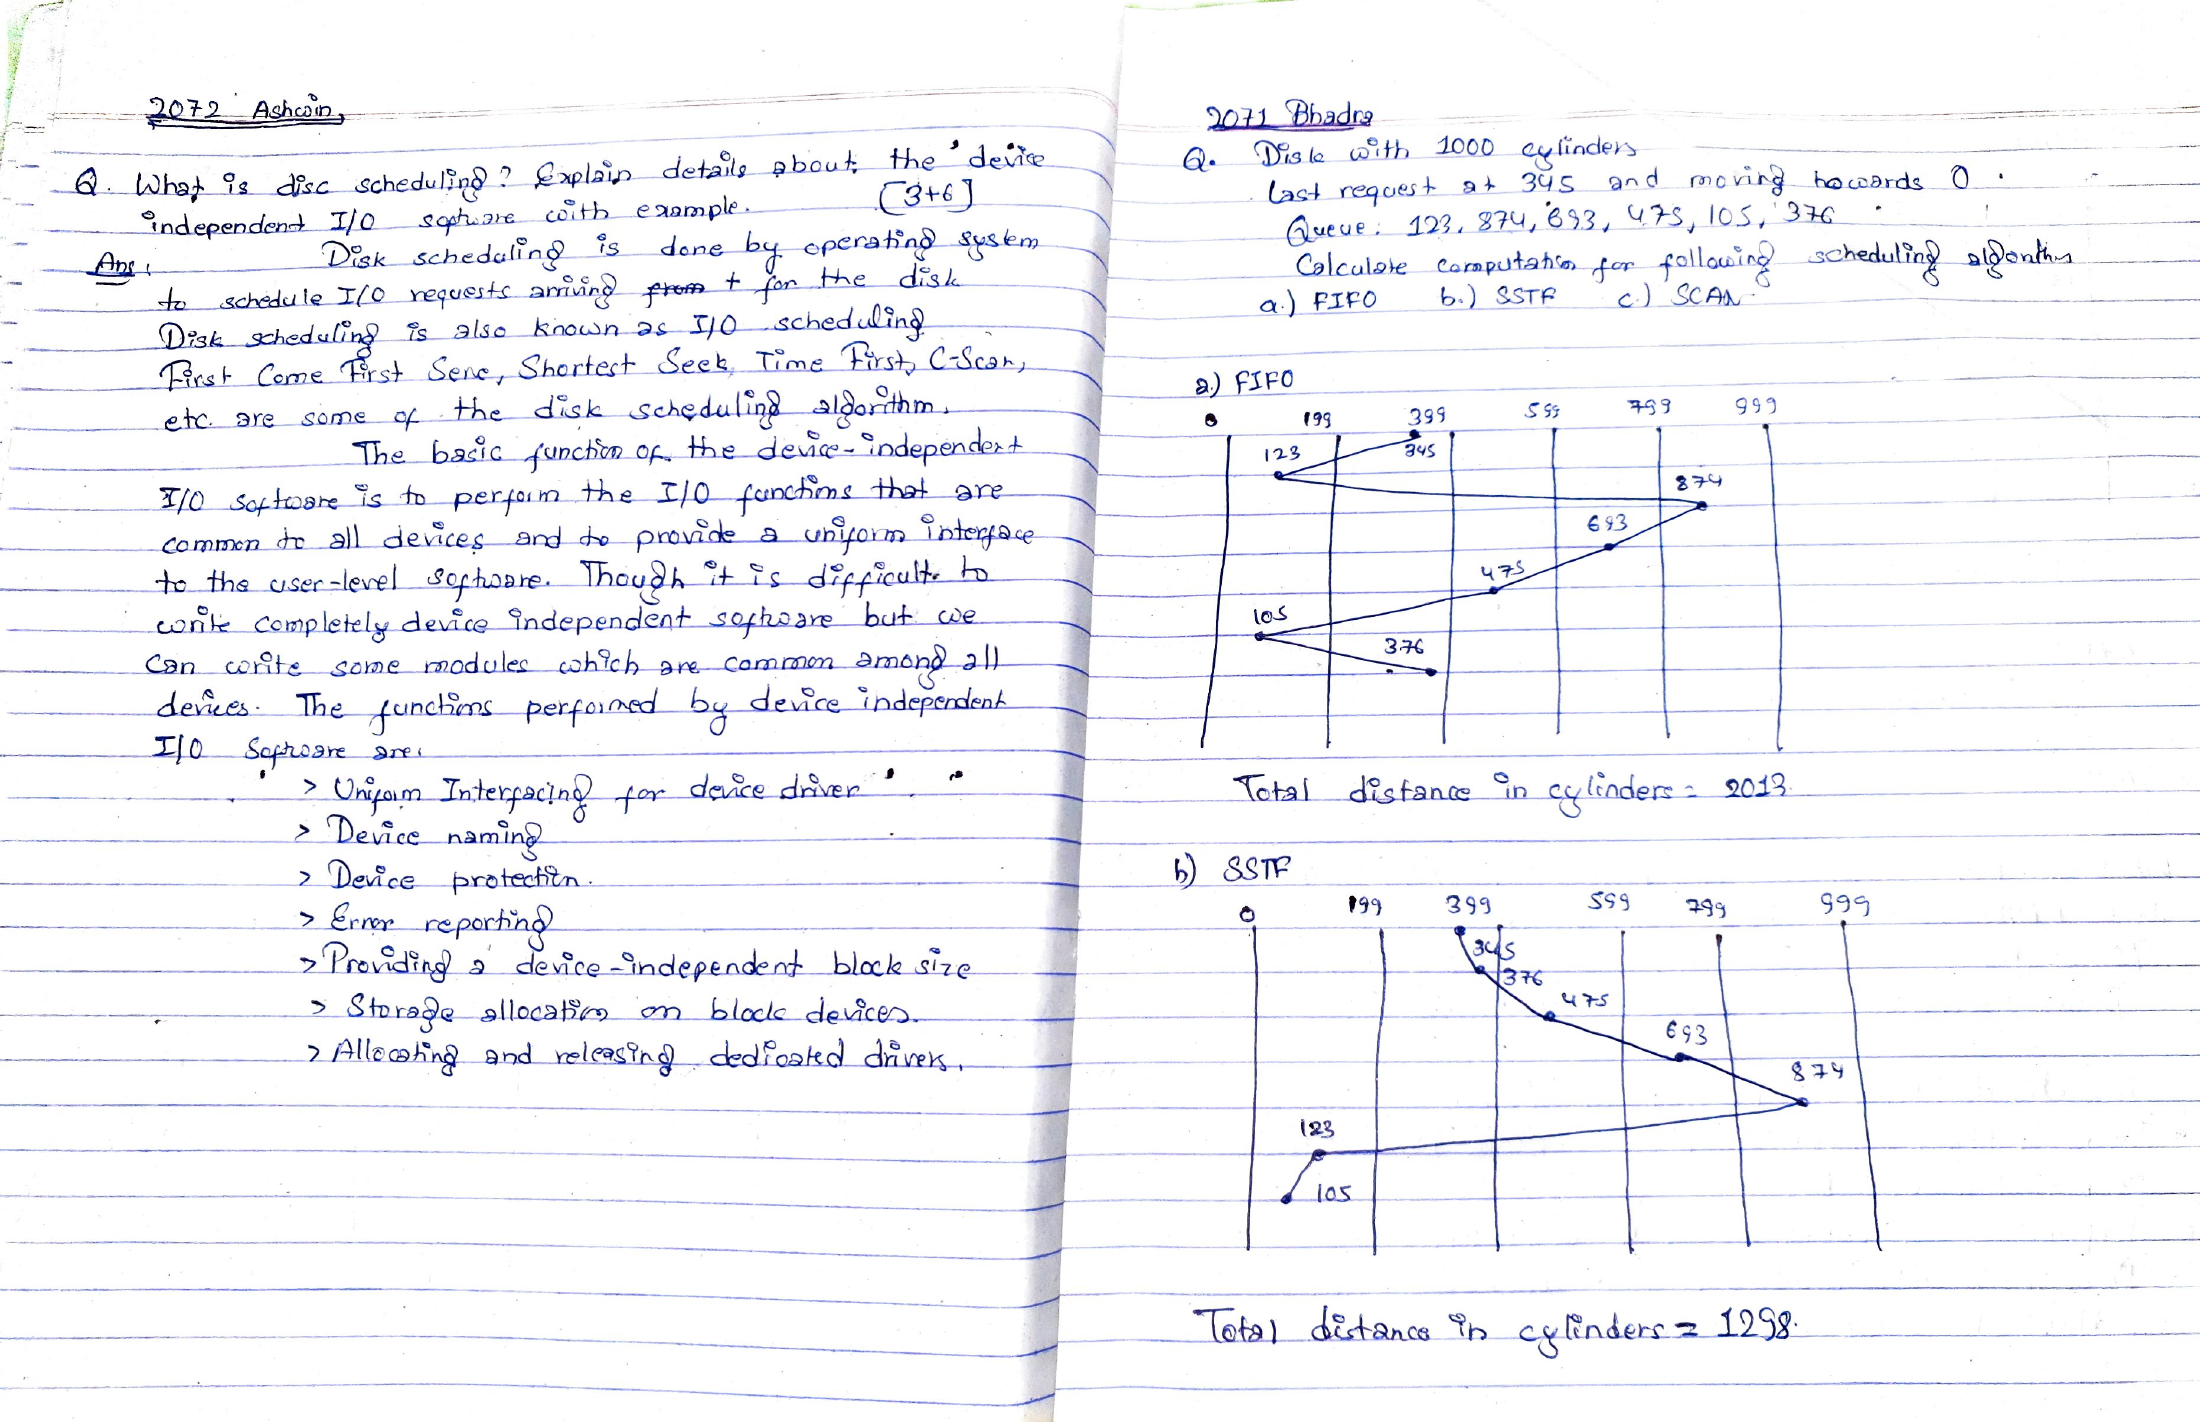 2072 Ashwin,
Q. What is disc scheduling? Explain details about the device
independent I/O software with example. [3+6]
Ans: Disk scheduling is done by operating system
to schedule I/O requests arriving from + for the disk
Disk scheduling is also known as I/O scheduling
First Come First Serve, Shortest Seek Time First, C-Scan,
etc. are some of the disk scheduling algorithm.
The basic function of the device-independent
I/O software is to perform the I/O functions that are
common to all devices and to provide a uniform interface
to the user-level software. Though it is difficult to
write completely device independent software but we
can write some modules which are common among all
devices. The functions performed by device independent
I/O Software are:
> Uniform Interfacing for device driver
> Device naming
> Device protection.
> Error reporting
> Providing a device-independent block size
> Storage allocation on block devices.
> Allocating and releasing dedicated drivers.
2071 Bhadra
Q. Disk with 1000 cylinders
last request at 345 and moving towards 0.
Queue: 123, 874, 693, 475, 105, 376
Calculate computation for following scheduling algorithm
a.) FIFO b.) SSTF c.) SCAN
a.) FIFO
0 199 399 599 799 999
123 345
874
693
475
105
376
Total distance in cylinders = 2013.
b) SSTF
0 199 399 599 799 999
345
376
475
693
874
123
105
Total distance in cylinders = 1298.